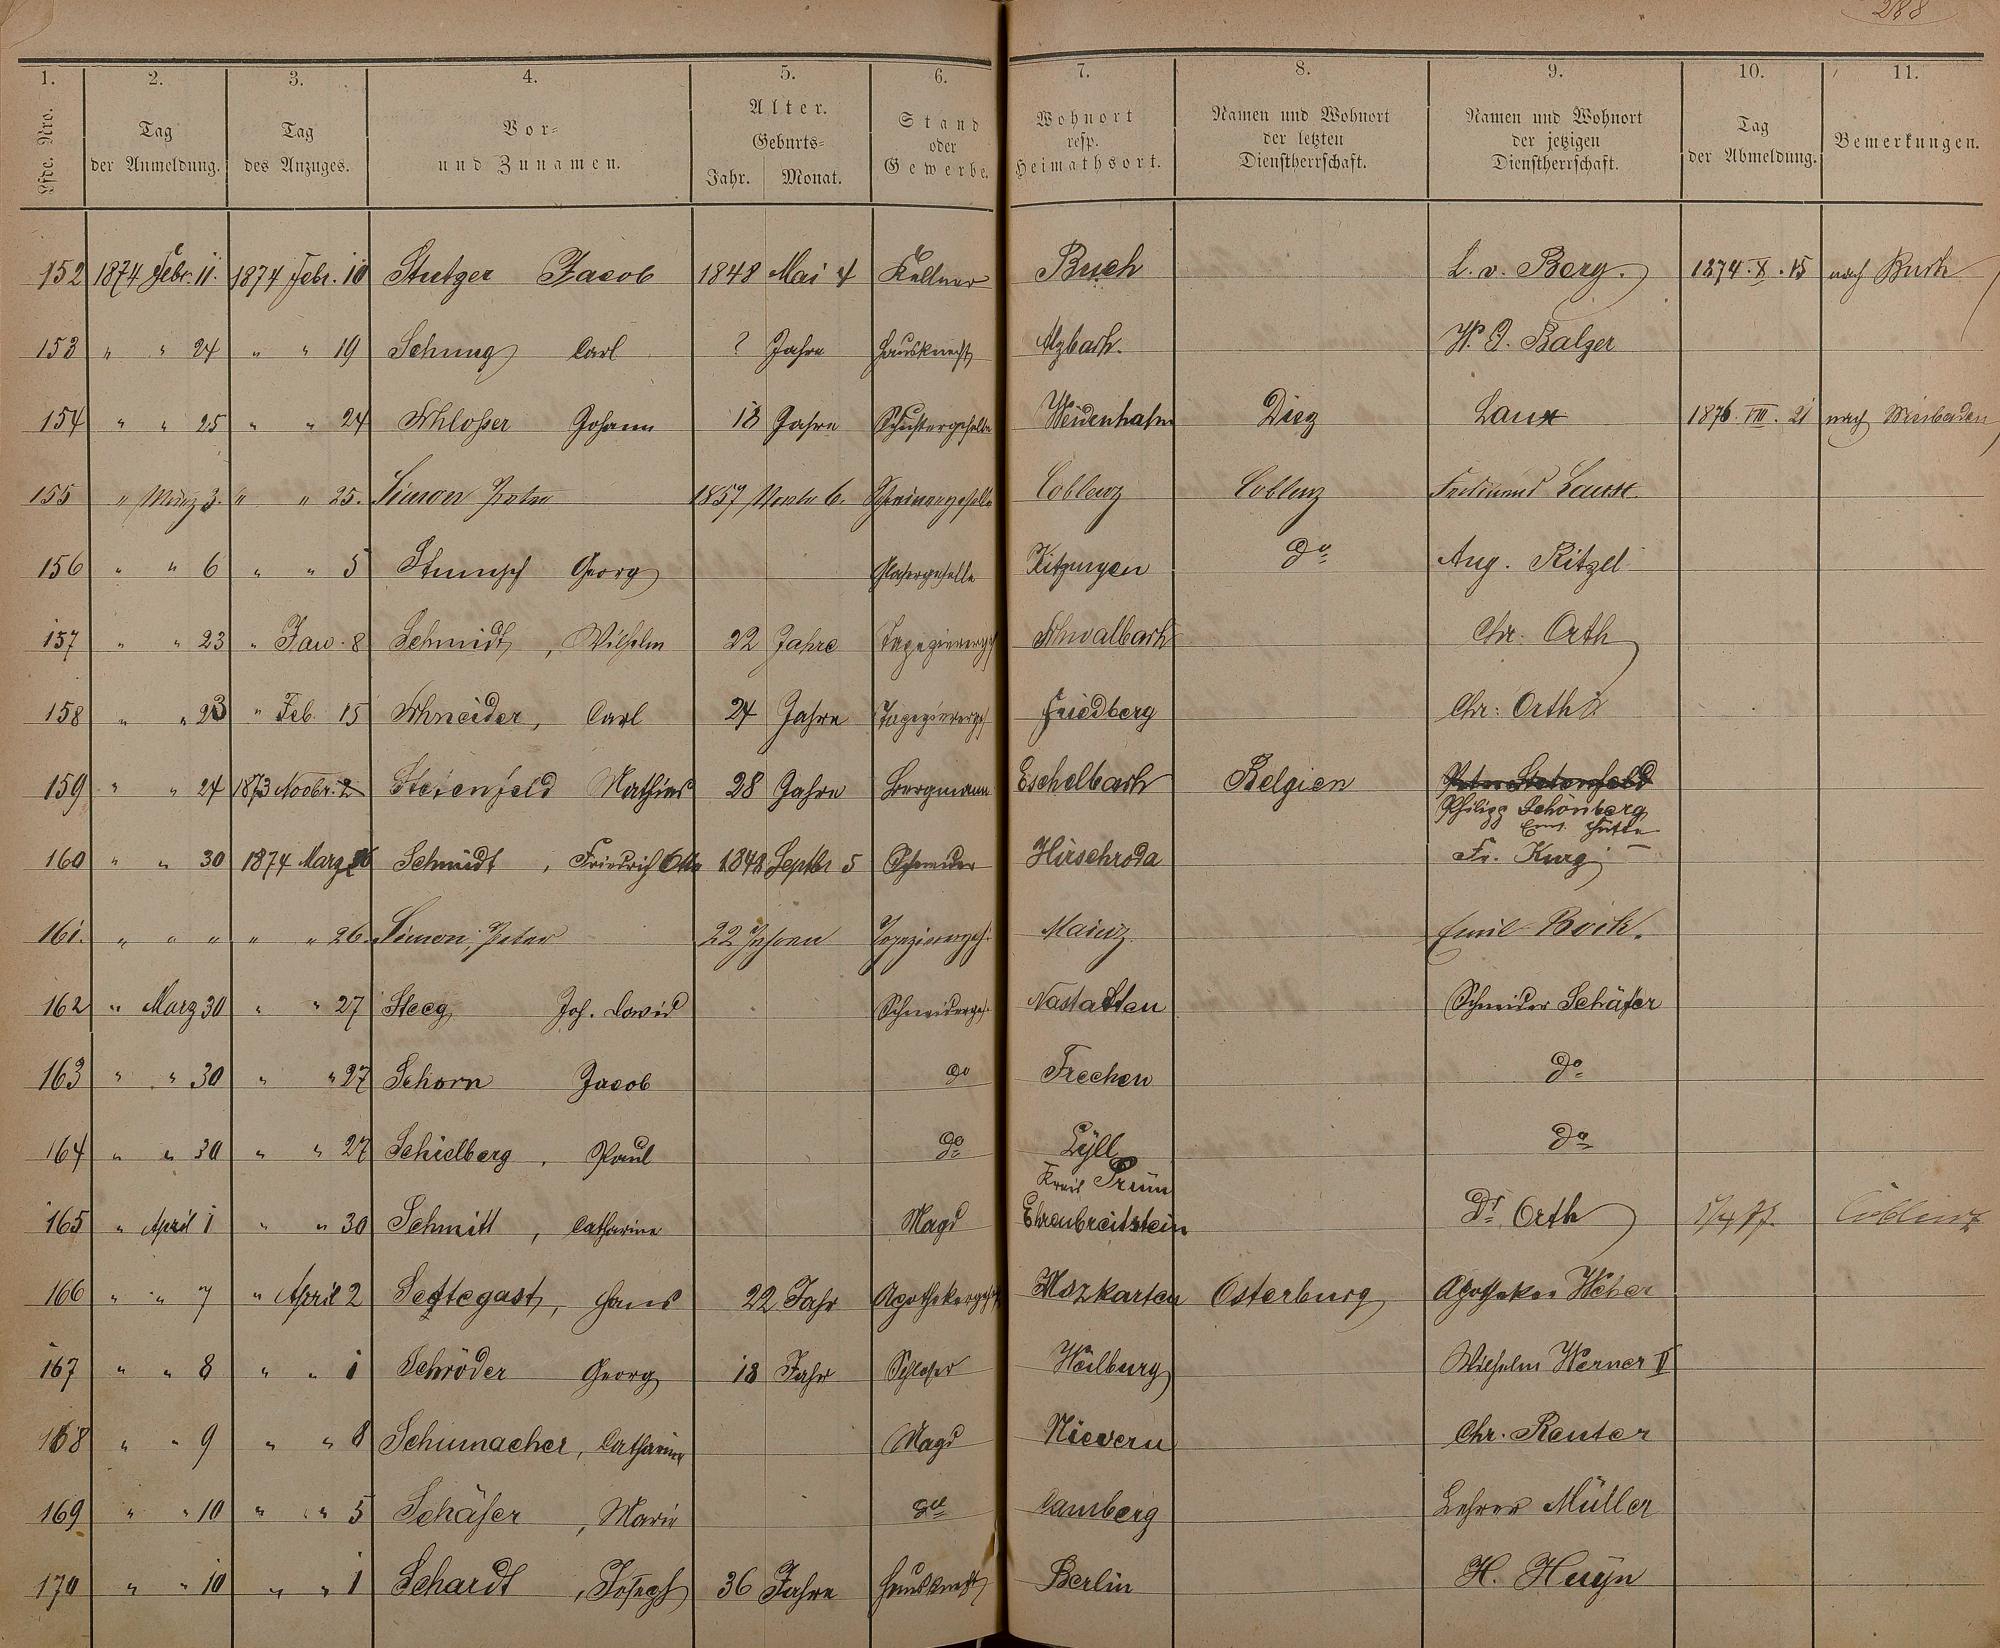 288
1. 2. 3. 4. 5. 6. 7. 8. 9. 10. 11.
Lfde. Nro. Tag der Anmeldung. Tag des Anzuges. Vor- und Zunamen. Alter. Geburts- Jahr. Monat. Stand oder Gewerbe. Wohnort resp. Heimathsort. Namen und Wohnort der letzten Dienstherrschaft. Namen und Wohnort der jetzigen Dienstherrschaft. Tag der Abmeldung. Bemerkungen.
152 1874 Febr. 11. 1874 Febr. 10 Stutzer Jacob 1848 Mai 4 Kellner Buch L. v. Berg. 1874. X. 15 nach Buch
153 " " 24 " " 19 Schung Carl ? Jahre Hausknecht Atzbach. W. G. Balzer
154 " " 25 " " 24 Schloßer Johann 18 Jahre Schustergeselle Weidenhahn Diez Laux 1876. VIII. 21 nach Wiesbaden
155 " März 3. " " 25. Simon Peter 1857 6. Schreinergeselle Coblenz Coblenz Ferdinand Lause
156 " " 6 " " 5 Stumpf Georg Glasergeselle Kitzingen do Aug. Ritzel
157 " " 23 " Jan. 8 Schmidt, Wilhelm 22 Jahre Tapezierergs Schwalbach Chr. Orth
158 " " 23 " Feb. 15 Schneider, Carl 24 Jahre Tapezierergs Friedberg Chr. Orth
159 " " 24 1873 Novbr. 2 Steienfeld Mathias 28 Jahre Bergmann Eschelbach Belgien Peter Steienfeld
Philipp Schönberg
Ems. Hütte
160 " " 30 1874 März 26 Schmidt, Friedrich Otto 1848 Septbr 5 Schneider Hirschroda Fr. Kurz
161. " " " " " 26. Simon, Peter 22 Jahren Tapezierergeh. Mainz. Emil Bock.
162 " März 30 " " 27 Steeg Joh. David Schneiderges. Nastatten Schneider Schäfer
163 " " 30 " " 27 Schorn Jacob do Frechen do
164 " " 30 " " 27 Schielberg, Paul do Lÿll do
Kreis Prüm
165 " April 1 " " 30 Schmitt, Catharine Magd Ehrenbreitstein Dr Orth 5/4 77. Coblenz
166 " " 7 " April 2 Settegast, Hans 22 Jahr Osterburg Apotheker Weber
167 " " 8 " " 1 Schröder Georg 18 Jahr Schloßer Weilburg Wilhelm Werner II
168 " " 9 " " 8 Schumacher, Catharine Magd Nievern Chr. Reuter
169 " " 10 " " 5 Schäfer, Marie do Camberg Lehrer Müller
170 " " 10 " " 1 Schardt, Joseph 36 Jahre Hausknecht Berlin H. Huyn